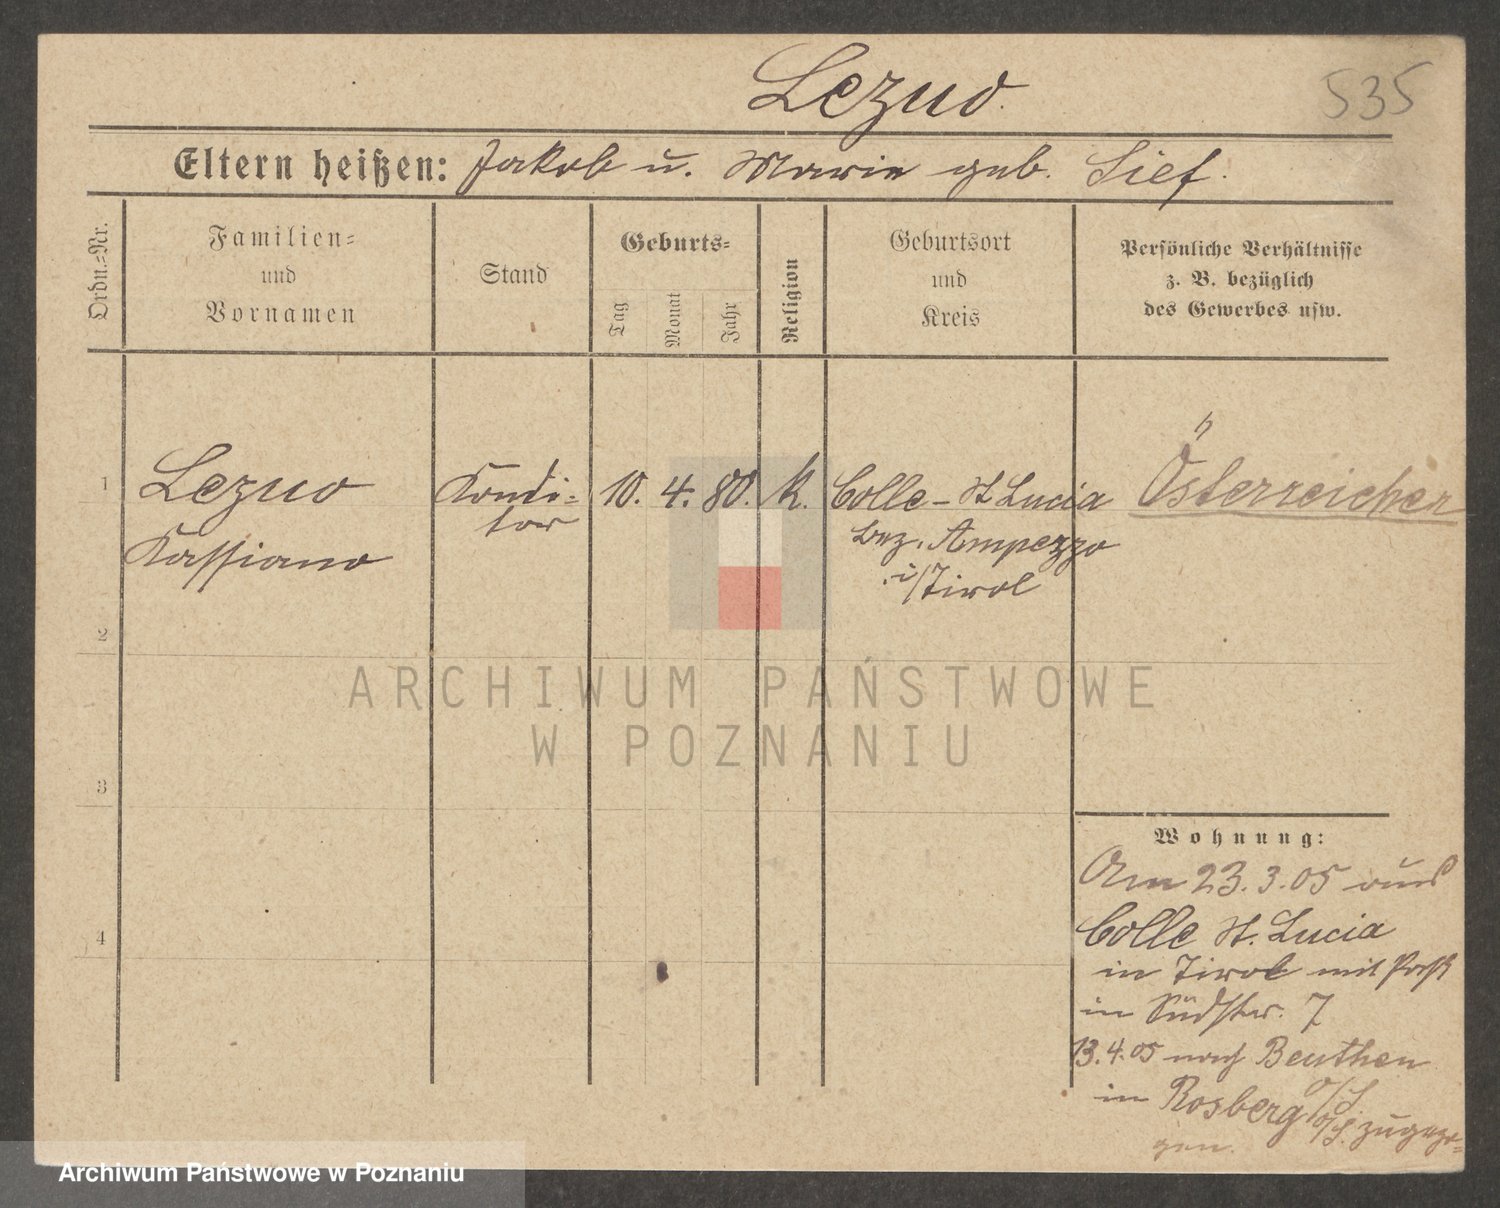 Lezuo.
535
Eltern heißen: Jakob u. Marie geb. Sief.
Ordn.=Nr.
Familien=
und
Vornamen
Stand
Geburts=
Tag
Monat
Jahr
Religion
Geburtsort
und
Kreis
Persönliche Verhältnisse
z. B. bezüglich
des Gewerbes usw.
1
Lezuo
Kassiano
Kondi=
tor
10. 4. 80. k.
Colle - St Lucia
bez. Ampezzo
i/Tirol
Österreicher
2
3
4
ARCHIWUM PAŃSTWOWE
W POZNANIU
Wohnung:
Am 23.3.05 aus
Colle St. Lucia
in Tirol mit Paß
in Südstr. 7
13.4.05 nach Beuthen
O/S.
in Rosberg O/S. zugezo=
gen.
Archiwum Państwowe w Poznaniu